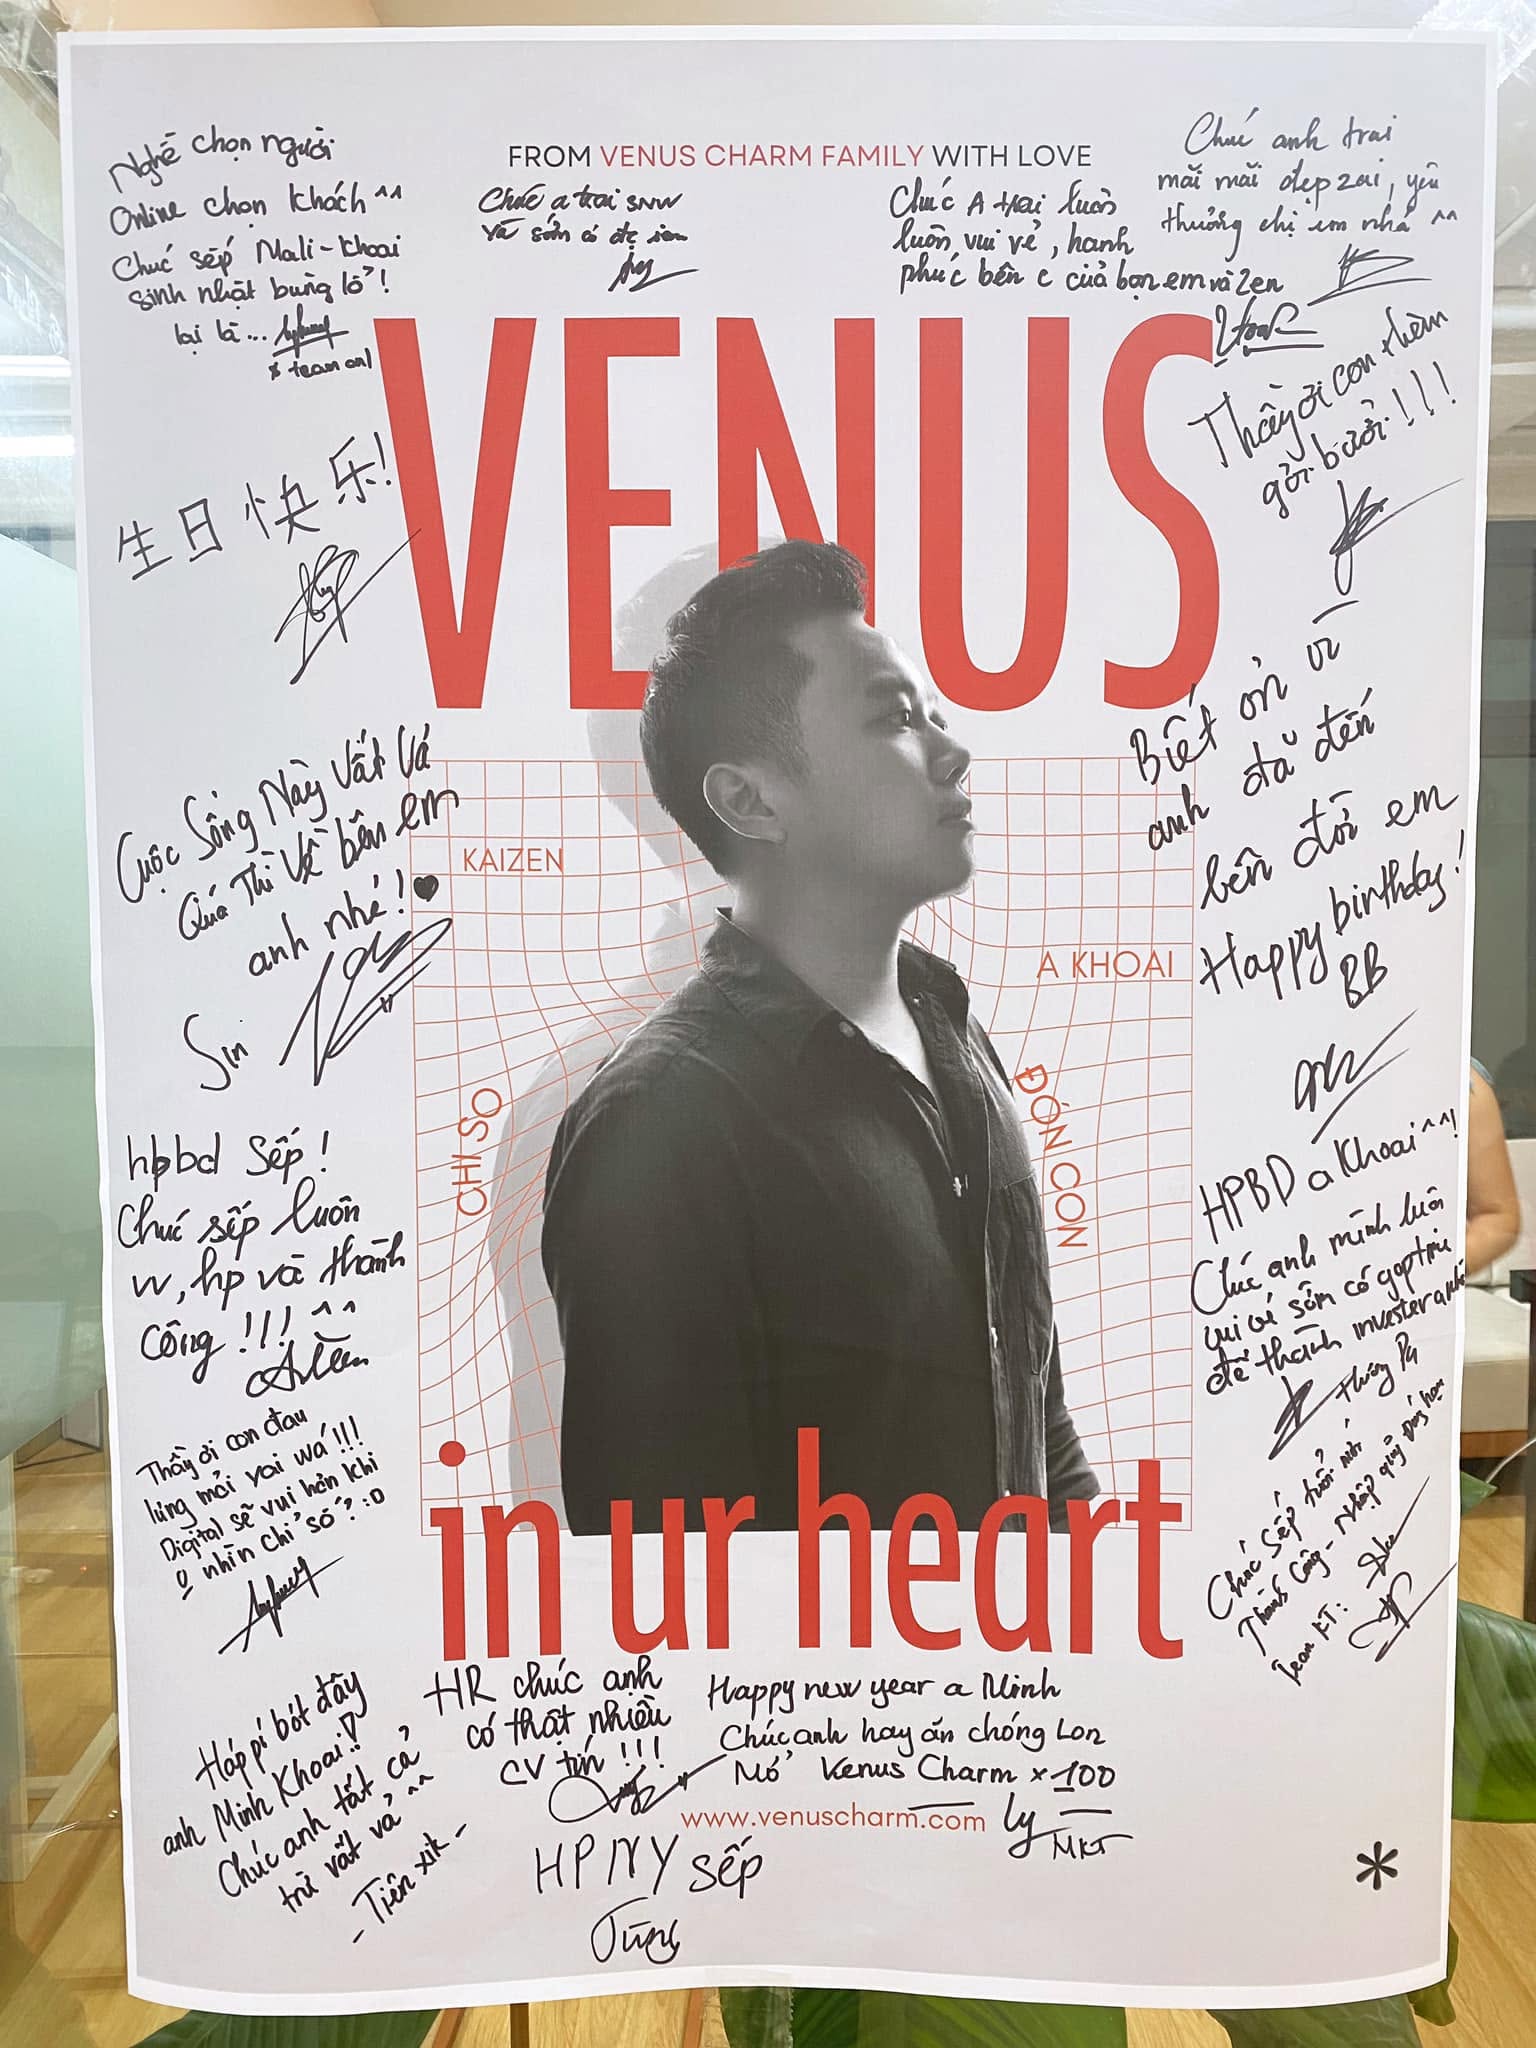 FROM VENUS CHARM FAMILY WITH LOVE
Nghề chọn người
Online chọn khách ^^
Chúc sếp Mali-Khoai
sinh nhật bùng lổ!
lại là...
team onl
Chúc a trai snvv
và sớm có
Chúc A trai luôn
luôn vui vẻ, hạnh
phúc bên c của bọn em và Zen
Chúc anh trai
mãi mãi đẹp zai, yêu
thương chị em nhá ^^
VENUS
Thầy ơi con thèm
gỏi bưởi!!!
生日快乐!
Biết ơn vì
anh đã đến
bên đời em
Happy birthday!
BB
Cuộc Sống Này Vất Vả
Quá Thì Về bên em
anh nhé!
Sin
KAIZEN
A KHOAI
CHI SO
ĐÓN CON
hpbd Sếp!
Chúc sếp luôn
vv, hp và thành
công!!! ^^
HPBD a Khoai ^^!
Chúc anh mình luôn
vui vẻ sớm có
để thành invester
Thầy ơi con đau
lưng mỏi vai wá!!!
Digital sẽ vui hơn khi
0 nhìn chỉ số? :D
Chúc Sếp tuổi mới
Thành Công - Nhập quỹ Đúng hạn
Team KT:
in ur heart
Háppi bót đây
anh Minh Khoai!
Chúc anh tất cả
trừ vất vả ^^
- Tiên xik -
HR chúc anh
có thật nhiều
CV tín!!!
Happy new year a Minh
Chúc anh hay ăn chóng Lon
Mở Venus Charm x 100
Ly
MKT
www.venuscharm.com
HPNY sếp
Tùng
*